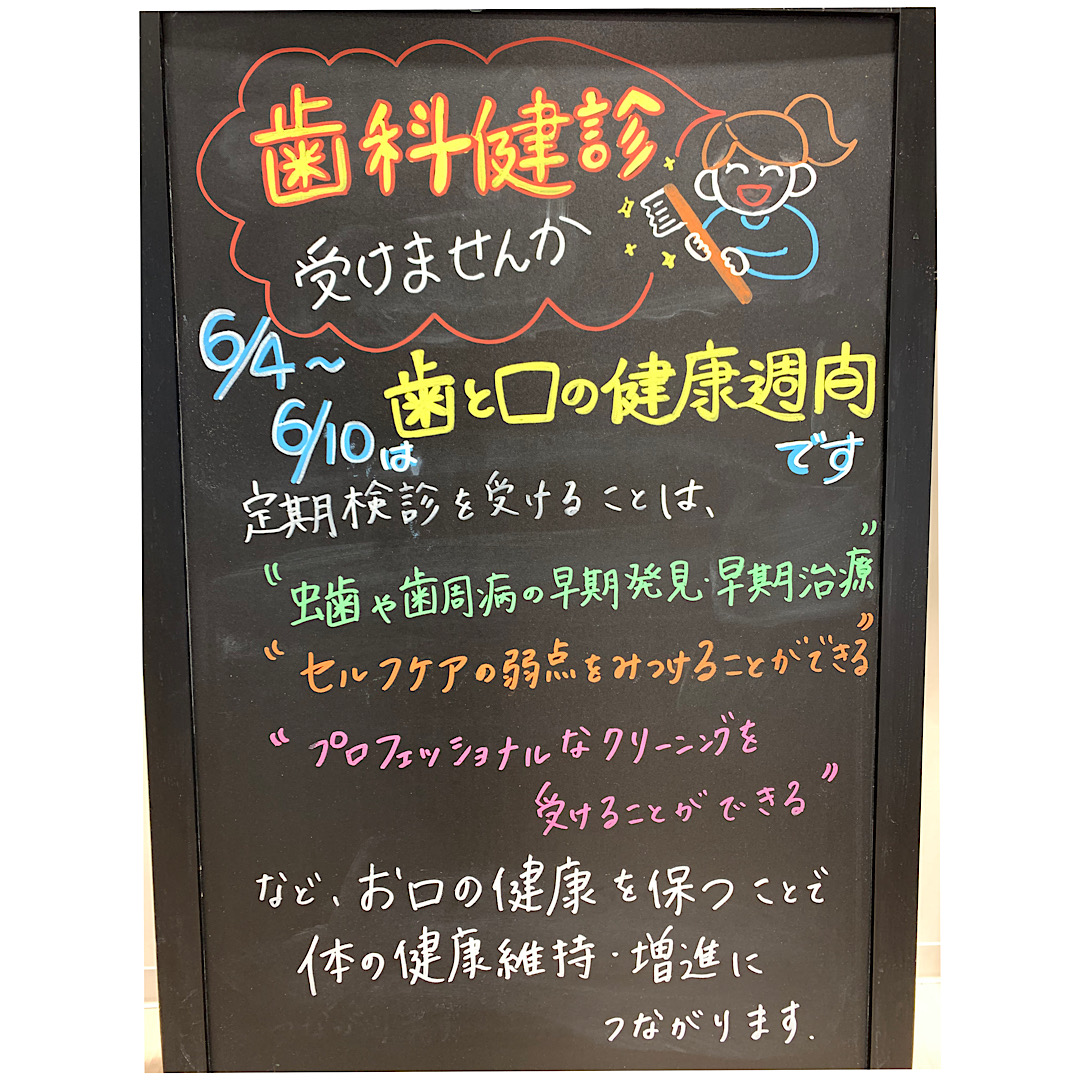 歯科健診
受けませんか
6/4〜
6/10は
歯と口の健康週間
です
定期検診を受けることは、
“虫歯や歯周病の早期発見・早期治療”
“セルフケアの弱点をみつけることができる”
“プロフェッショナルなクリーニングを
受けることができる”
など、お口の健康を保つことで
体の健康維持・増進に
つながります.